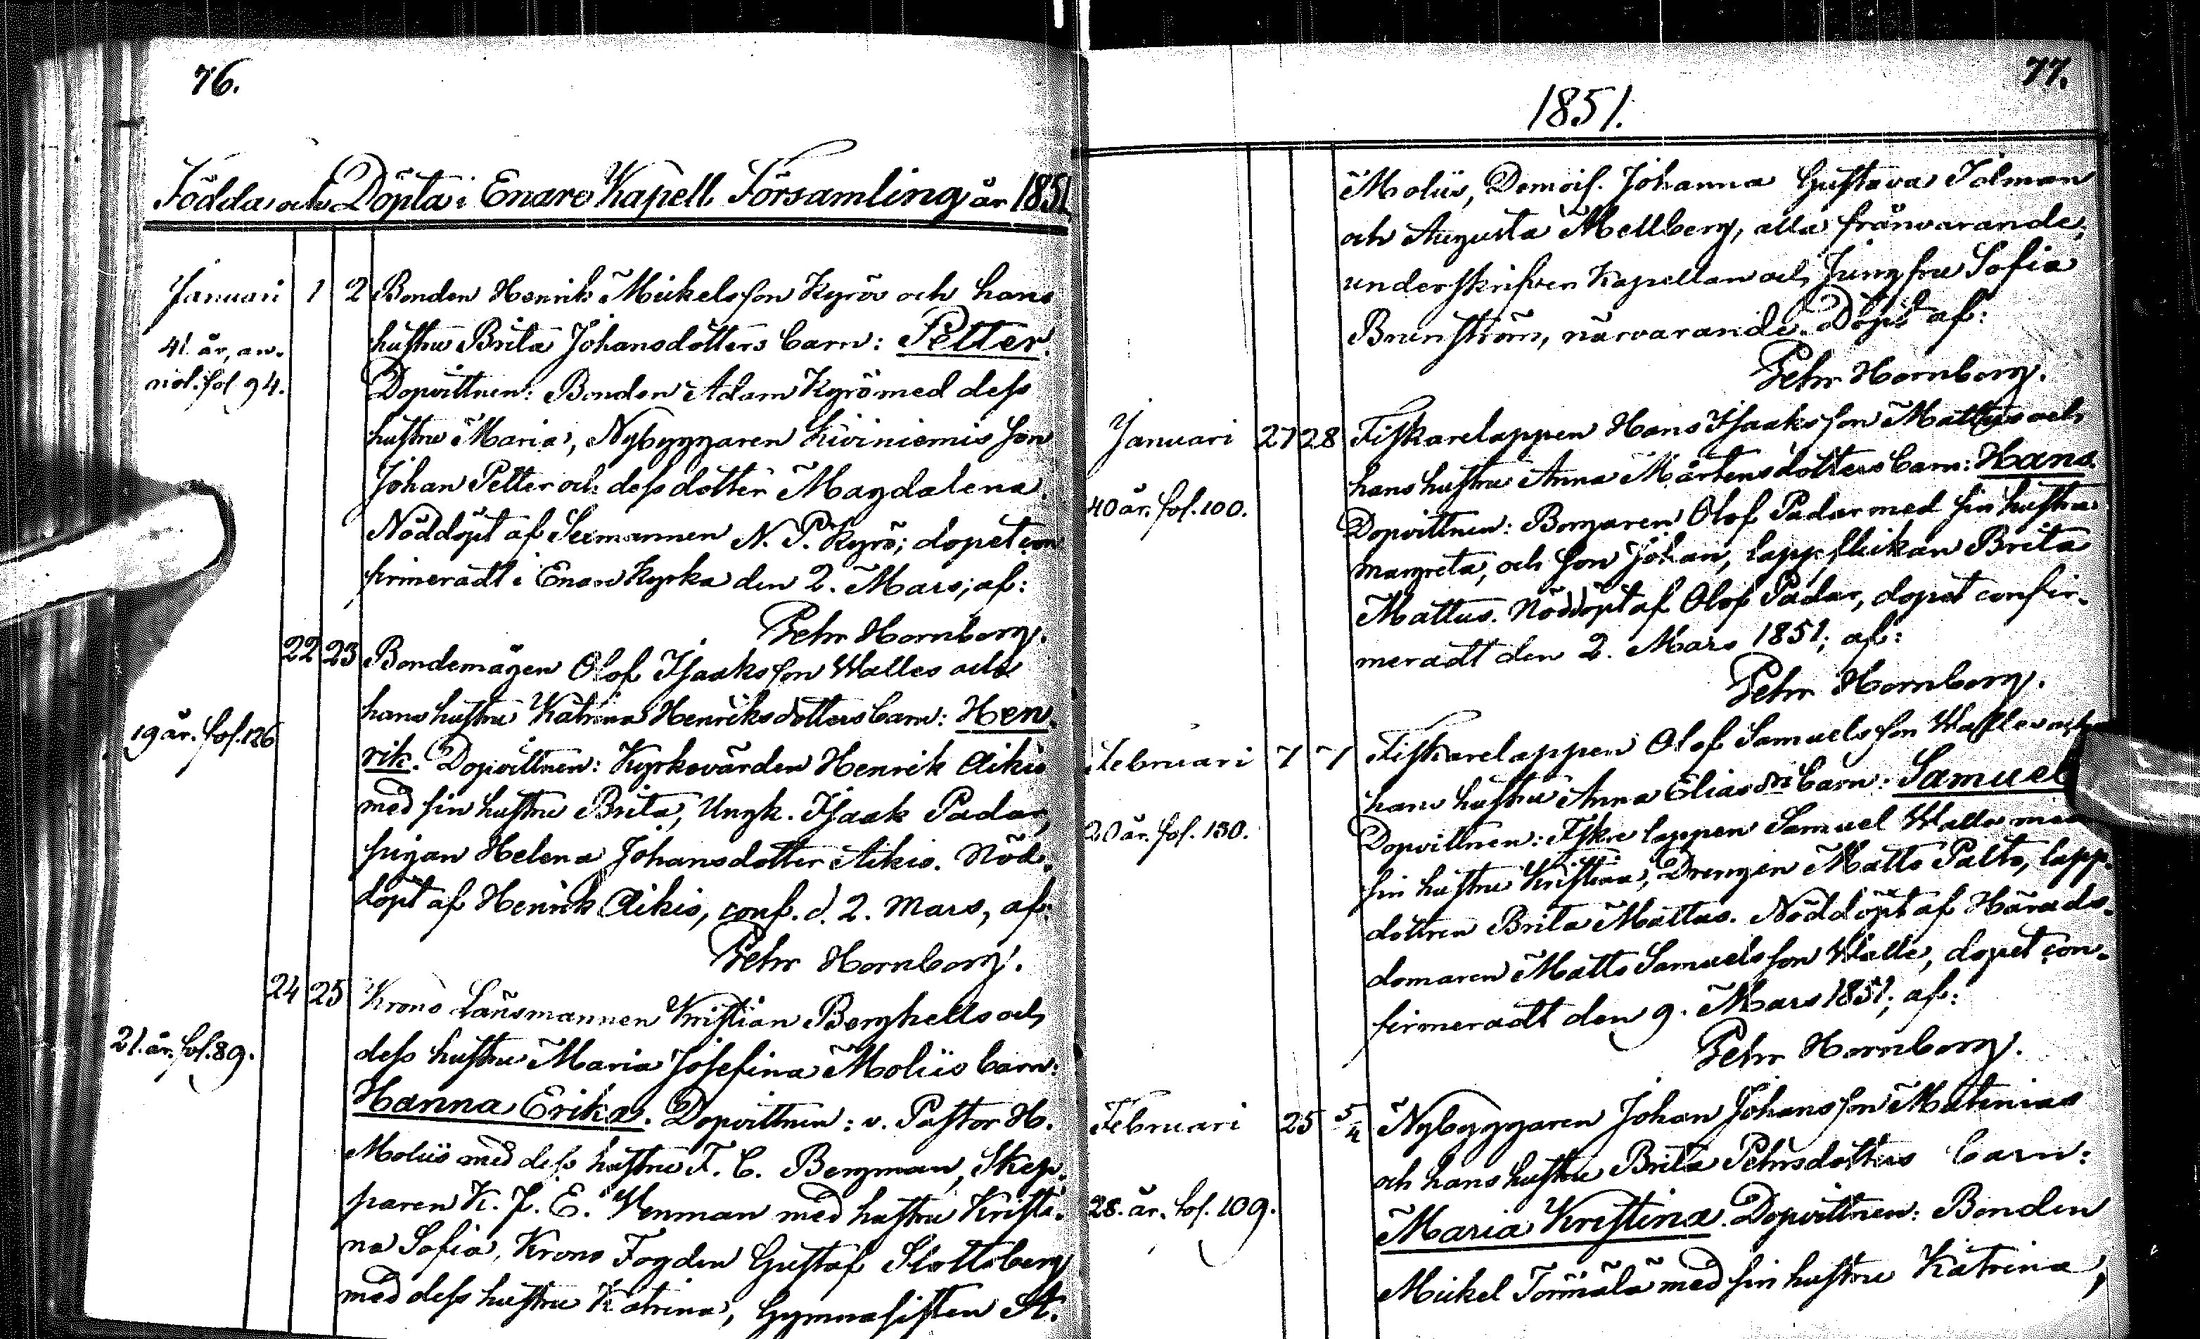 76.
Födda och Döpta i Enare Kapell Församling år 1851
Januari 1 2 Bonden Henrik Mickelsson Kyrös och hans
hustru Brita Johansdotters barn: Petter.
41 år, an.
not. fol 94.
Dopvittnen: Bonden Adam Kyrö med dess
hustru Maria, Nybyggaren Kiviniemis son
Johan Petter och dess dotter Magdalena.
Nöddöpt af Sexmannen N. P. Kyrö; dopet con
firmeradt i Enare Kyrka den 2. Mars; af:
Pehr Hornborg.
22 23 Bondemågen Olof Isaaksson Walles och
hans hustru Katrina Henriksdotters barn: Hen-
19 år. fol. 126
rik. Dopvittnen: Kyrkovärden Henrik Aikio
med sin hustru Brita, Ungk. Isaak Padar,
pigan Helena Johansdotter Aikio. Nöd-
döpt af Henrik Aikio, conf. d. 2. Mars, af:
Pehr Hornborg.
24 25 Krono Länsmannen Kristian Berghells och
21. år. fol. 89.
dess hustru Maria Josefina Moliis barn:
Hanna Erika. Dopvittnen: v. Pastor H.
Moliis med dess hustru F. C. Bergman, Skep-
paren K. J. E. Wenman med hustru Kristi-
na Sofia, Krono Fogden Gustaf Slottsberg
med dess hustru Katrina, Gymnasisten St.
77.
1851.
Moliis, Demois. Johanna Gustava Tolman
och Augusta Mellberg, alla frånvarande;
underskrifven Kapellan och Jungfru Sofia
Brunström, närvarande. Döpt af:
Pehr Hornborg.
Januari 27 28 Fiskarelappen Hans Isaaksson Mattus och
hans hustru Anna Mårtensdotters barn: Hans.
40 år. fol. 100.
Dopvittnen: Borgaren Olof Padar med sin hustru
Margreta, och son Johan, lappflickan Brita
Mattus. Nöddöpt af Olof Padar, dopet confir-
meradt den 2. Mars 1851; af:
Pehr Hornborg.
Februari 7 7 Fiskarelappen Olof Samuelsson Walles och
hans hustru Anna Eliasdrs barn: Samuel
20 år. fol. 130.
Dopvittnen: Fiskrelappen Samuel Walle med
sin hustru Kristina, Drengen Matts Palto, lapp-
dottren Brita Mattus. Nöddöpt af Härads-
domaren Matts Samuelsson Walle, dopet con-
firmeradt den 9. Mars 1851; af:
Pehr Hornborg.
Februari 25 5/4 Nybyggaren Johan Johansson Mutenias
och hans hustru Brita Pehrsdotters barn:
28. år. fol. 109.
Maria Kristina. Dopvittnen: Bonden
Mickel Törmälä med sin hustru Katrina,